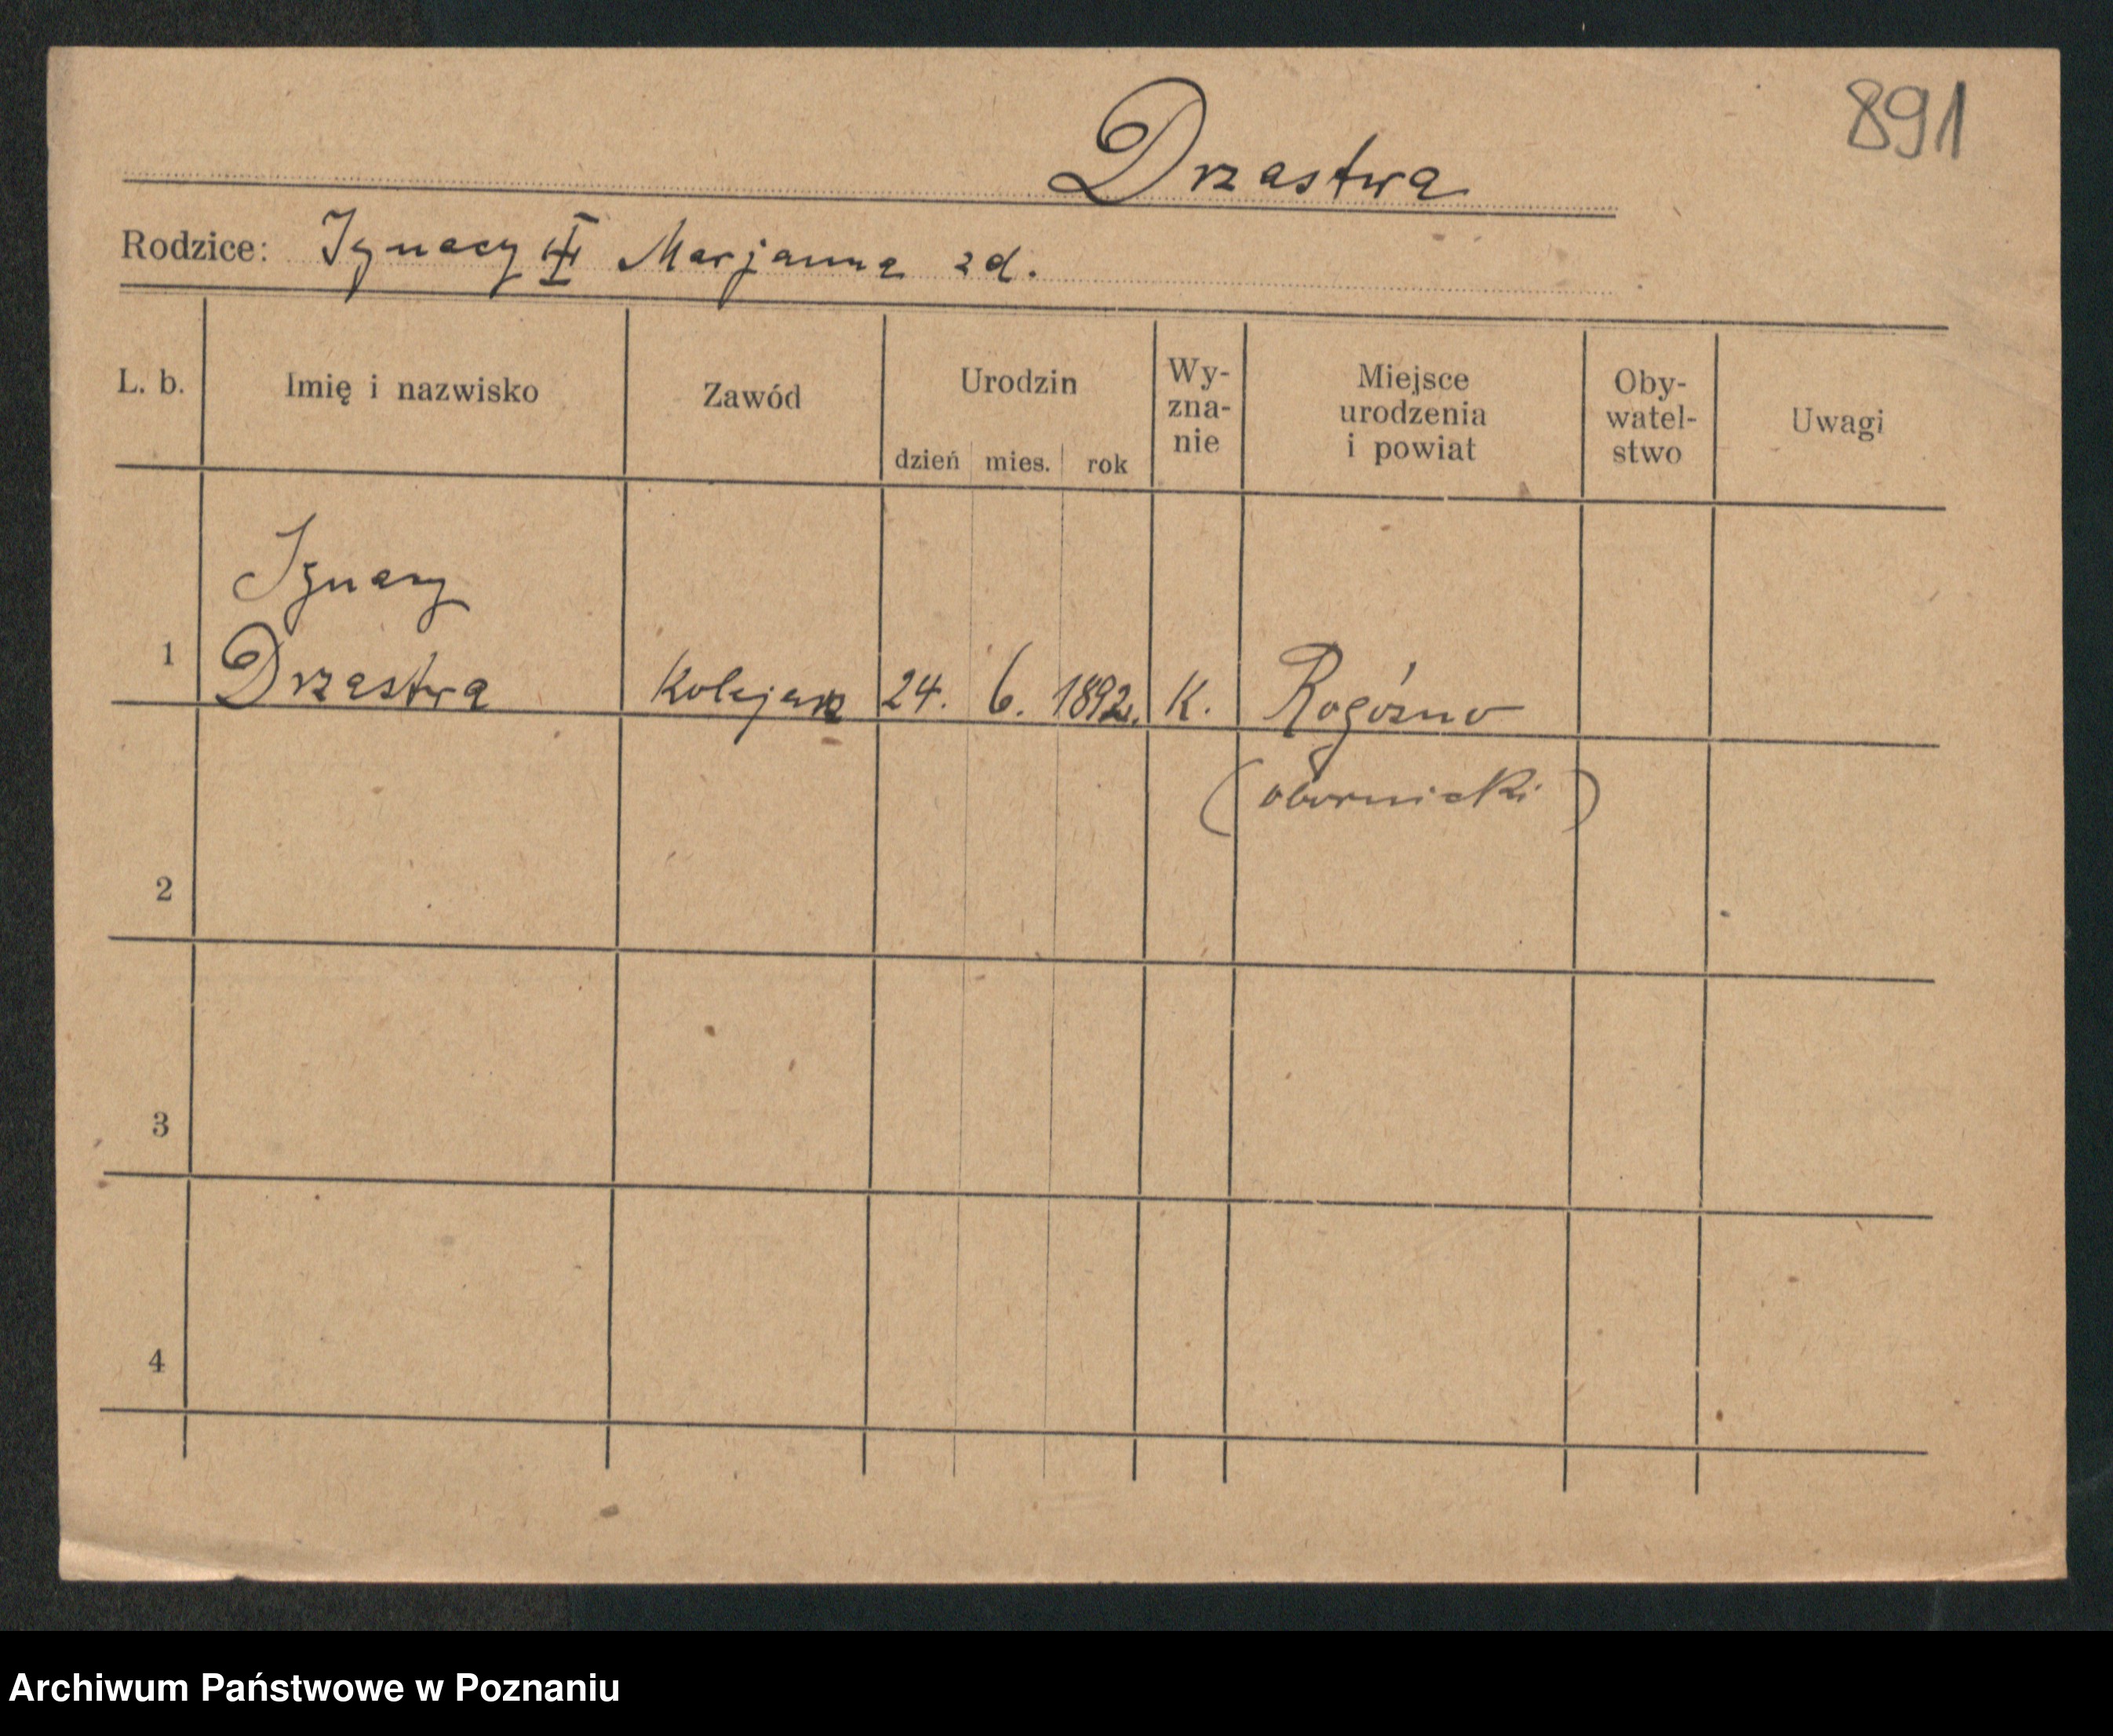 891
Drzastwa
Rodzice: Ignacy Marjanna zd.
L. b. Imię i nazwisko Zawód Urodzin dzień mies. rok Wy-zna-nie Miejsce urodzenia i powiat Oby-watel-stwo Uwagi
Ignacy
1 Drzastwa Kolejarz 24. 6. 1892r. K. Rogóżno
(obornicki)
2
3
4
Archiwum Państwowe w Poznaniu